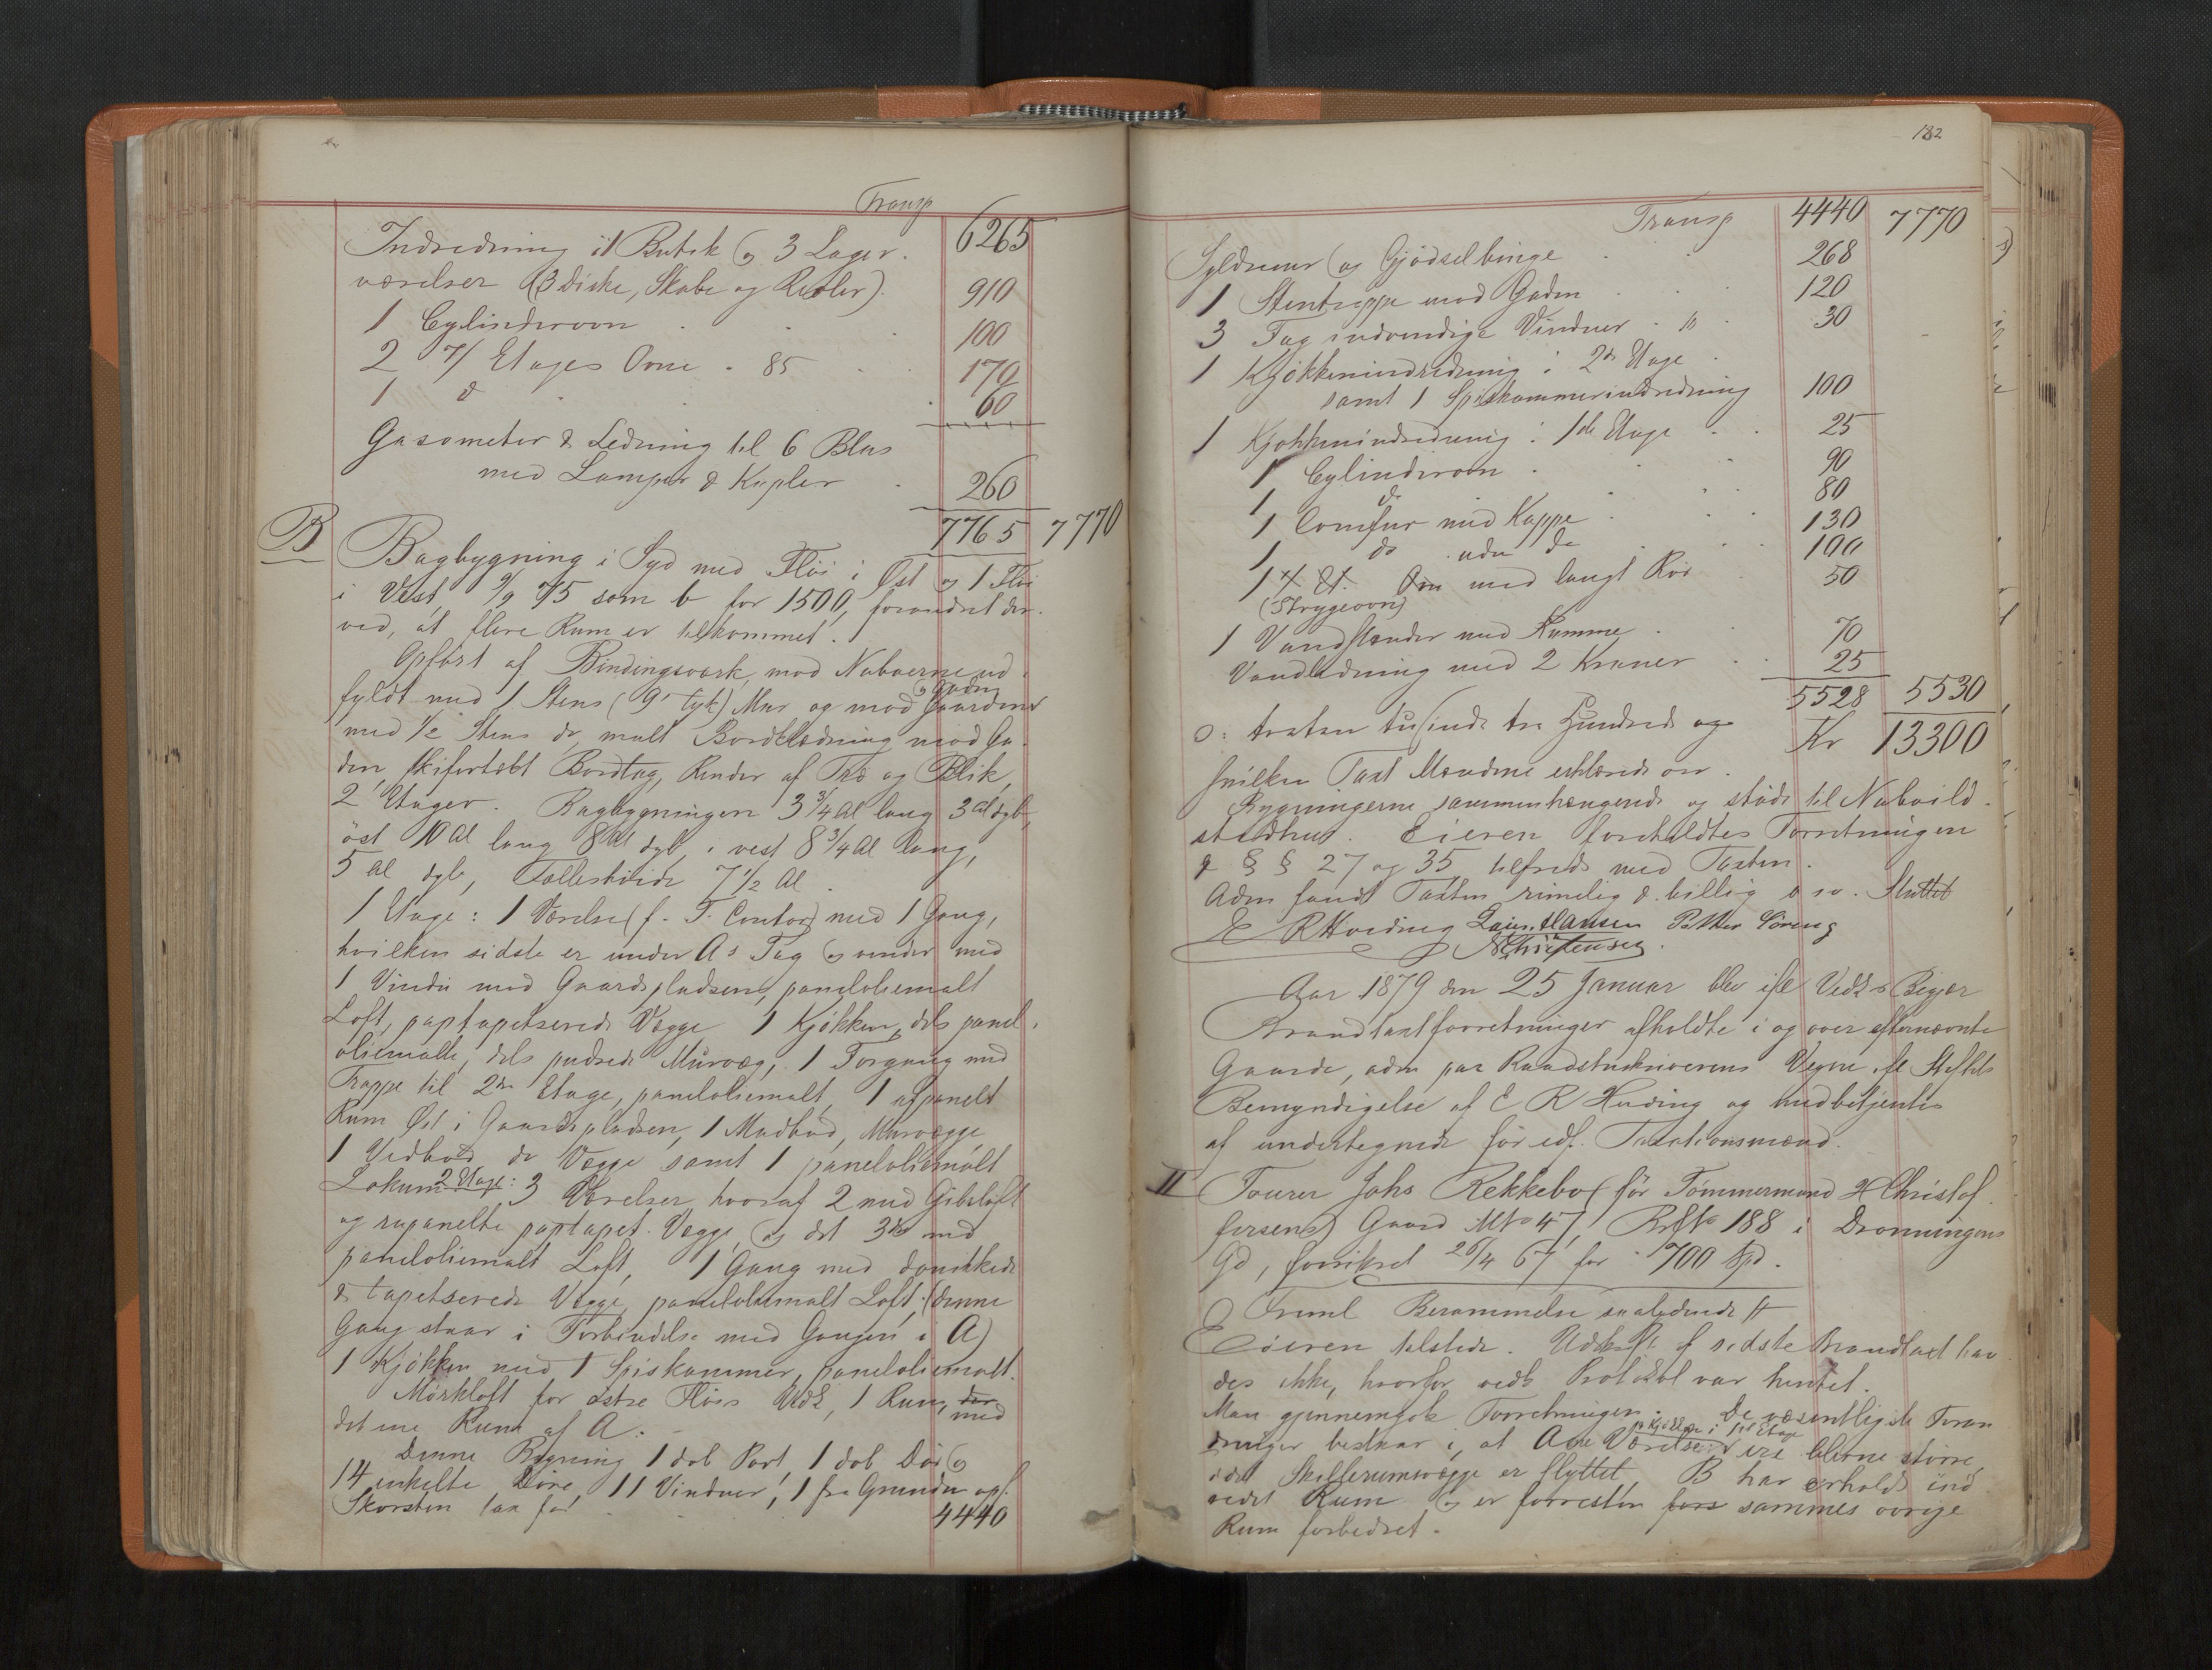 Transp
Indredning i 1 Butik og 3 Lager- 6265
værelser (3 Diske, Skabe og Reoler). 910
1 Cylinderovn 100
2 4/ Etages Ovne . 85 170
1 d 60
Gasometer & Ledning til 6 Blus
med Lamper & Kupler 260
7765 7770
B Bagbygning i Syd med Fløi i Øst og 1 Fløi
i Vest, 9/9 75 som b for 1500, forandret der-
ved, at flere Rum er tilkommet.
Opført af Bindingsværk, mod Naboerne ud-
fyldt med 1 Stens (9" tyk) Mur og mod Gaarden
og Gaden
med 1/2 Stens do, malt Bordklædning mod Ga-
den, skifertækt Bordtag, Render af Træ og Blik,
2 Etager. Bagbygningen 3 3/4 Al lang 3 Al dyb,
öst 10 Al lang 8 Al dyb, i vest 8 3/4 Al lang,
5 Al dyb, Fælleshøide 7 1/2 Al.
1 Etage: 1 Værelse (f. T. Contor) med 1 Gang,
hvilken sidste er under A's Tag og under med
1 Vindu mod Gaardspladsen, paneloliemalt
Loft, paptapetserede Vægge 1 Kjøkken, dels panel-
oliemalte, dels pudsede Murvæg, 1 Forgang med
Trappe til 2den Etage, paneloliemalt, 1 upanelt
Rum Øst i Gaardspladsen, 1 Madbod, Murvægge
1 Vedbod do Vægge samt 1 paneloliemalt
Lokum. 2 Etage: 3 Værelser, hvoraf 2 med Gibsloft
og rupanelte paptapet. Vægge, og det 3die med
paneloliemalt Loft, 1 Gang med
& tapetserede Vægge, paneloliemalt Loft, (denne
Gang staar i Forbindelse med Gangen i A)
1 Kjøkken med 1 Spiskammer, paneloliemalt.
Mørkloft for østre Fløis Vedk, 1 Rum, der
med
denne Rum af A.
Denne Bygning 1 dob Port, 1 dob Dør og
14 enkelte Döre, 11 Vinduer, 1 fra Grunden opf.
Skorsten tax for 4440
182
Transp 4440 7770
Syldmur og Gjødselbinge 268
1 Stentrappe mod Gaden 120
3 Fag indvendige Vinduer . 10 30
1 Kjøkkenindredning i 2den Etage
samt 1 Spiskammerindredning 100
1 Kjøkkenindredning i 1ste Etage 25
1 Cylinderovn 90
1 d 80
1 Comfur med Kappe 130
1 do uden do 100
1 4/ Et. Ovn med langt Rör 50
(Strygeovn)
1 Vandstænder med Kumme 70
Vandledning med 2 Kraner 25
5528 5530
ɔ: tretten tusinde tre Hundrede og Kr 13300
hvilken Taxt Mændene erklærede os.
Bygningerne sammenhængende og støde til Naboild-
stedhus. Eieren foreholdtes Forretningen
§ § 27 og 35 tilfreds med Taxten.
Adm fandt Taxten rimelig & billig o sv. Sluttet
E R Hveding Laur. Hansen Petter Søreng
N Christensen
Aar 1879 den 25 Januar blev ifl Vedk s Begjær
Brandtaxtforretninger afholdte i og over efternævnte
Gaarde, adm paa Raadstuskriverens Vegne ifl Stiftets
Bemyndigelse af E R Hveding og medbetjente
af undertegnede før edf. Taxationsmænd.
II Fourer Johs Rekkebo (för Tømmermand H Christof-
fersens) Gaard Mto 47, Rnto 188 i Dronningens
Gd, forsikret 26/4 67 for 700 Spd.
Freml Berammelse saalydende #
Eieren tilstede. Udskrift af sidste Brandtaxt hav-
des ikke, hvorfor vedk Protokol var hentet.
Man gjennemgik Forretningen. De væsentligste Foran-
dringer bestaar i, at A
og Kjøkken i 1ste Etage
ere blevne større,
idet Skillerumsvægge er flyttet, B har erholdt ind-
redet Rum og er forresten fors sammes øvrige
Rum forbedret.